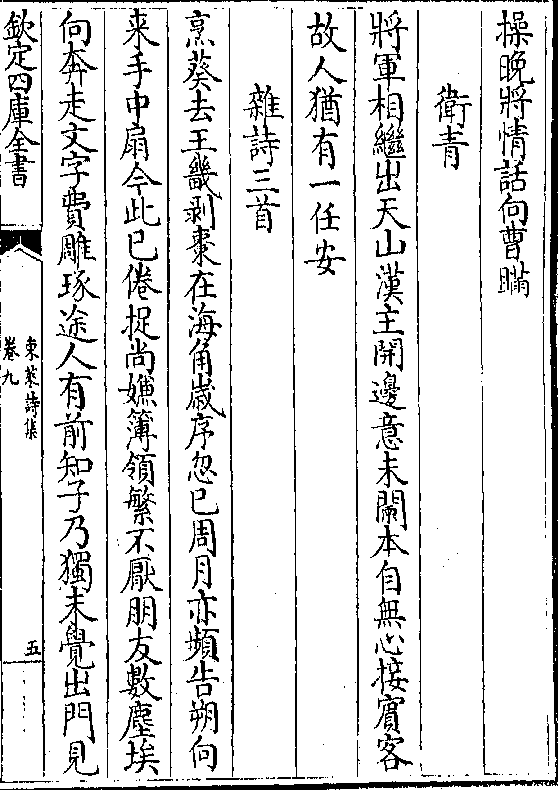 操晩將情話向曹瞞
衛青
將軍相繼出天山漢主開邊意未闌本自無心接賓客
故人猶有一任安
雜詩三首
烹葵去王畿剥棗在海角嵗序忽已周月亦頻告朔向
来手中扇今此已倦捉尚嫌簿領繁不厭朋友數塵埃
向奔走文字費雕琢途人有前知子乃獨未覺出門見
欽定四庫全書
東萊詩集
卷九
五